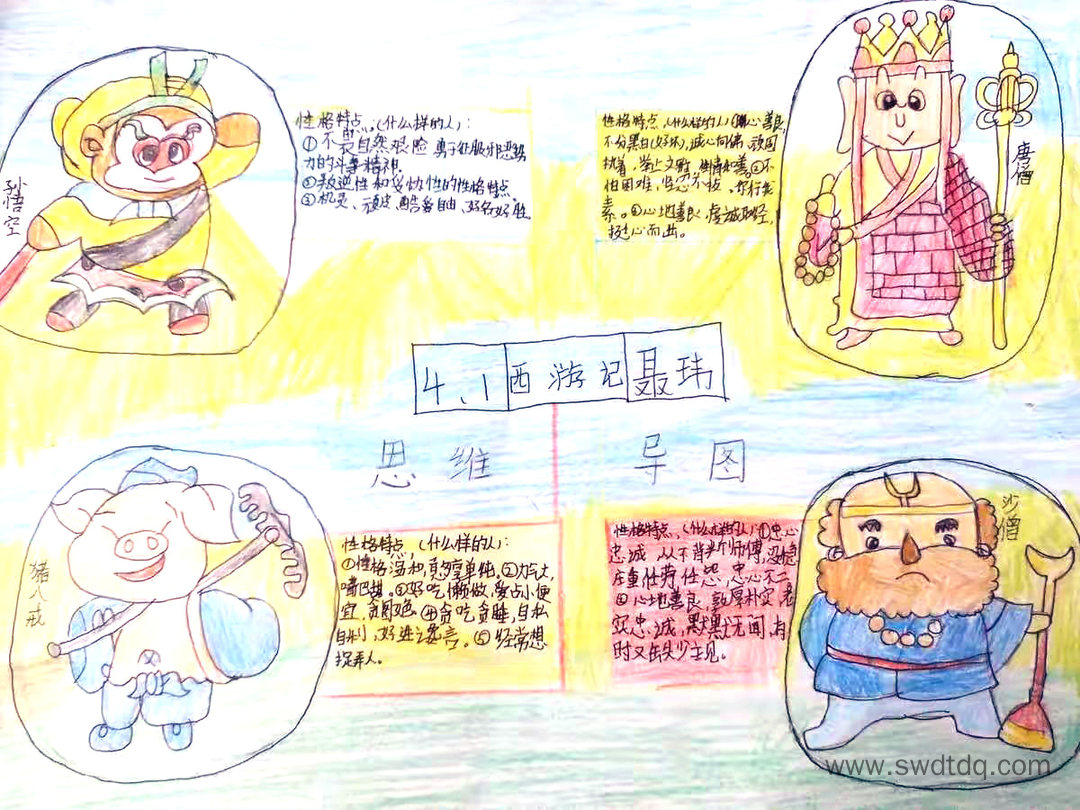 孙悟空
性格特点,(什么样的人):
①不畏自然艰险 勇于征服邪恶势
力的斗争精神.
②叛逆性和妥协性的性格特点.
③机灵、顽皮,酷爱自由、好名好胜.
性格特点,(什么样的人)善良,
不分黑白(好坏),诚心向佛、顽固
执着,
怕困难,坚忍不拔、
素。③心地善良、虔诚取经,
挺心而出。
唐僧
4.1 西游记 聂玮
思维导图
猪八戒
性格特点,(什么样的人):
①性格温和,憨厚单纯,②力气大,
嘴巴甜。③好吃懒做、爱占小便
宜,贪图女色 ④贪吃贪睡,自私
自利,好进谗言。⑤经常想
捉弄人。
性格特点,(什么样的人)①忠心
忠诚,从不背判师傅,
任劳任怨,忠心不二
②心地善良、敦厚朴实、老
实忠诚,默默无闻,有
时又缺少主见。
沙僧
www.swdtdq.com